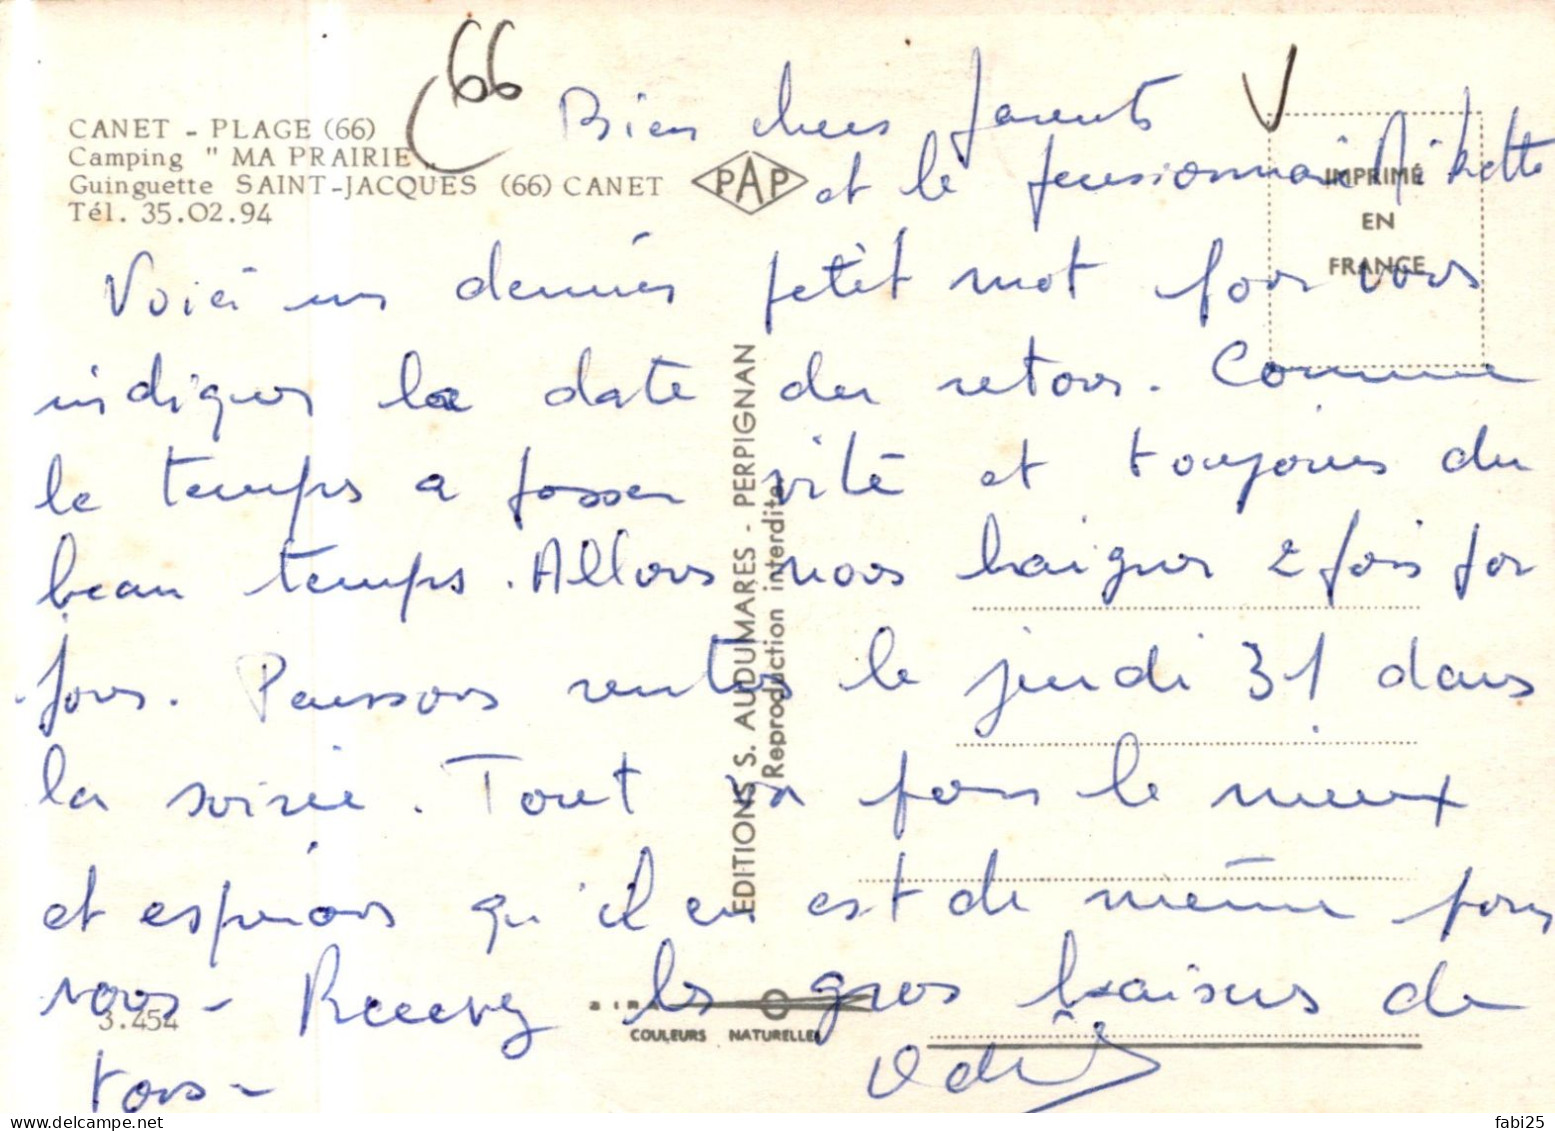 (66
CANET - PLAGE (66)
Camping " MA PRAIRIE "
Guinguette SAINT-JACQUES (66) CANET
Tél. 35.02.94
PAP
IMPRIMÉ
EN
FRANCE
Bien chers parents
et le pensionnaire
Voici un dernier petit mot pour vous
indiquer la date du retour. Comme
le temps a passer vite et toujours du
beau temps. Allons nous baigner 2 fois par
jour. Pensons rentrer le jeudi 31 dans
la soirée. Tout va pour le mieux
et espérons qu'il en est de même pour
vous - Recevez les gros baisers de
tous -
EDITIONS S. AUDUMARES - PERPIGNAN
Reproduction interdite
3.454
COULEURS NATURELLES
delcampe.net
fabi25